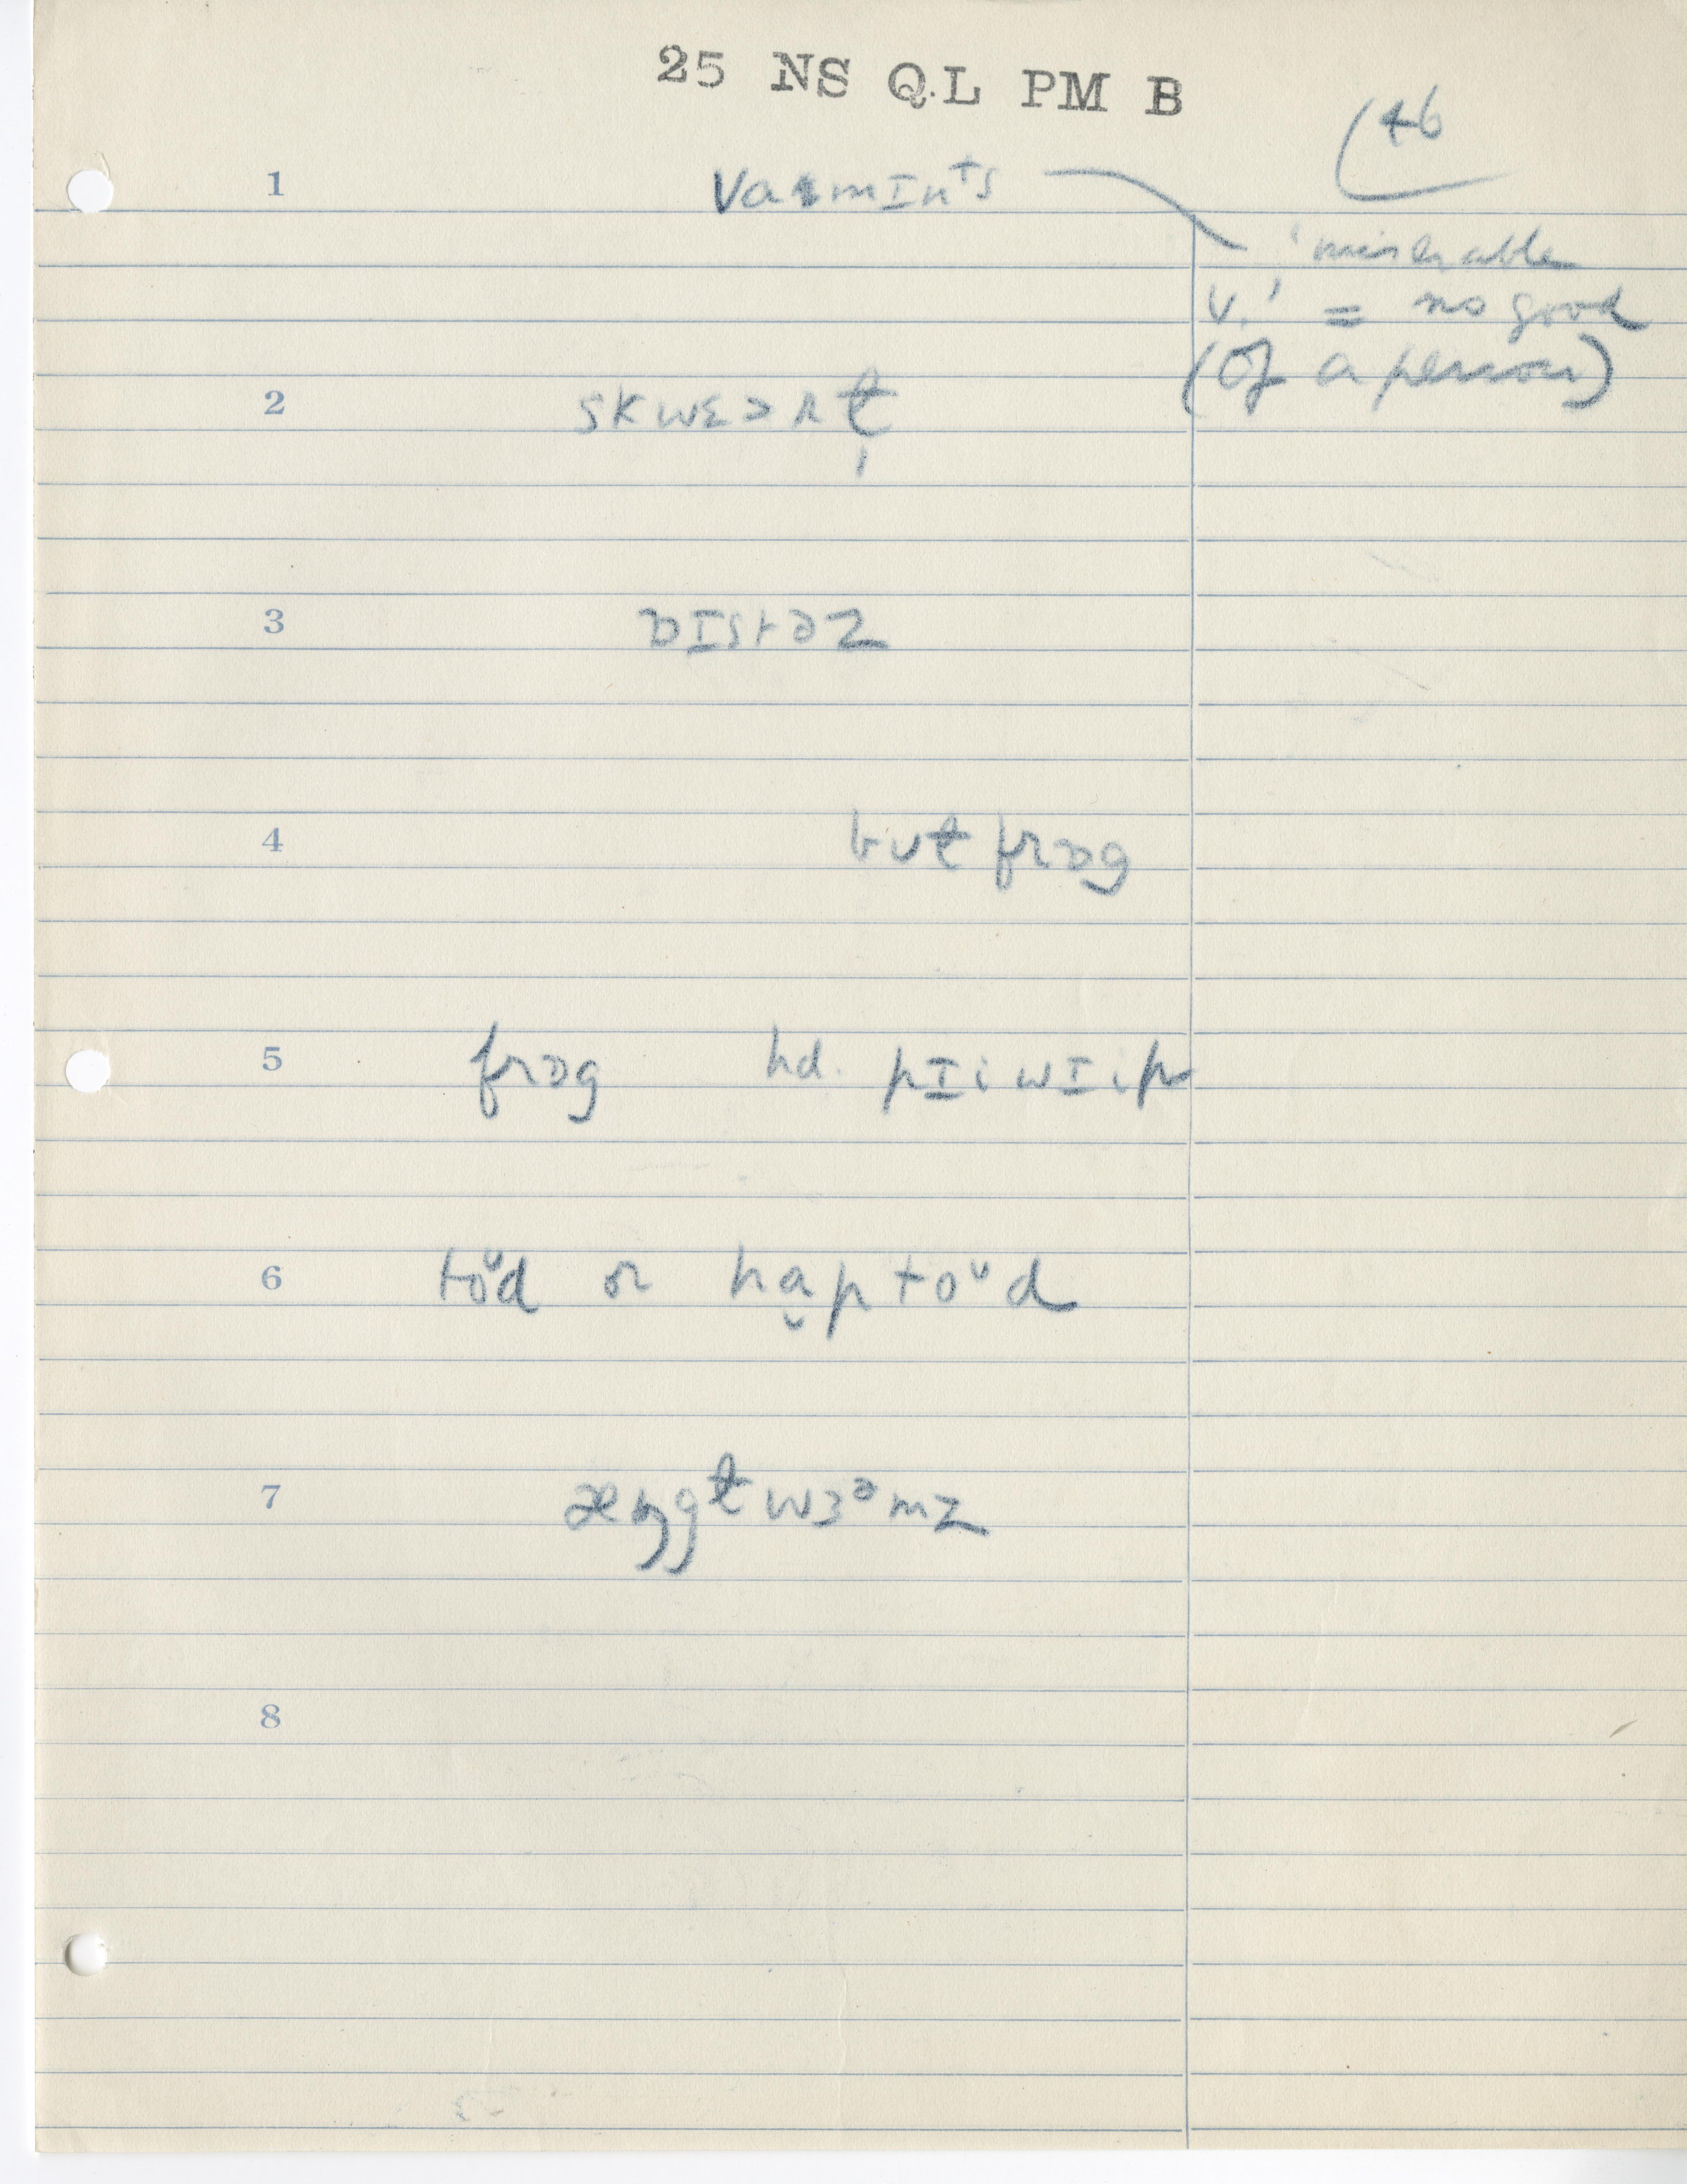 25 NS QL PM B
46
1 vaɹmɪnᵗs
'miserable
v.' = no good
(of a person)
2 skwɛərɫ̩
3 ɒɪstəz
4 bʊɫfrɒg
5 frɒg hd. pɪiwɪip
6 toᵘd or ha̬ptoᵘd
7 æŋgɫwɜᵊmz
8